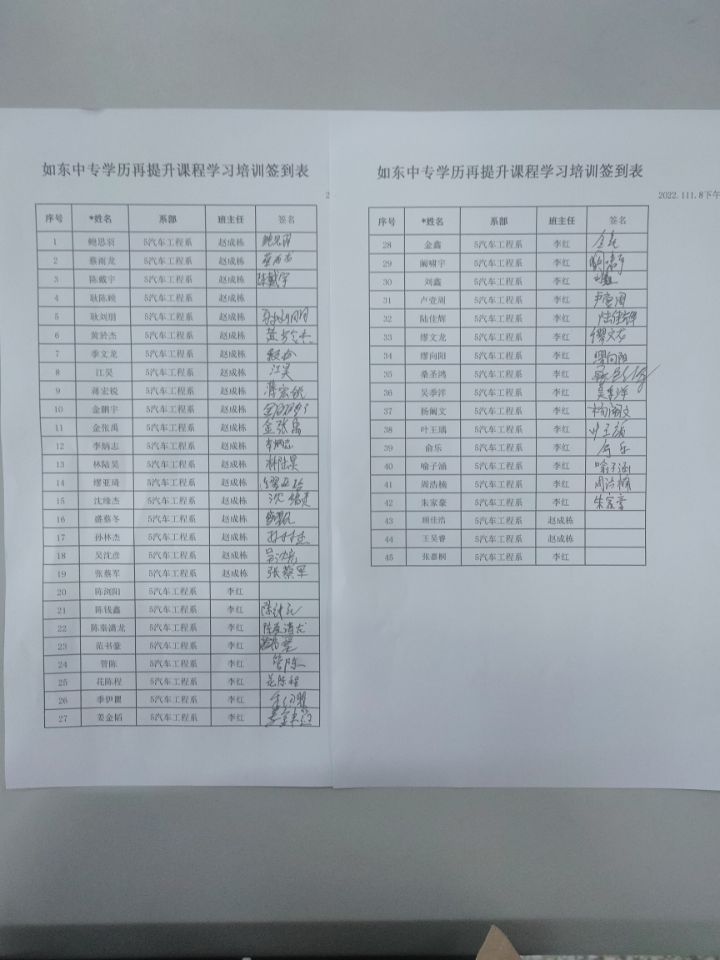 如东中专学历再提升课程学习培训签到表
2
序号 *姓名 系部 班主任 签名
1 鲍思羽 5汽车工程系 赵成栋 鲍思羽
2 蔡雨龙 5汽车工程系 赵成栋
3 陈戴宇 5汽车工程系 赵成栋 陈戴宇
4 耿陈峻 5汽车工程系 赵成栋
5 耿刘朋 5汽车工程系 赵成栋
6 黄於杰 5汽车工程系 赵成栋 黄於杰
7 季文龙 5汽车工程系 赵成栋
8 江昊 5汽车工程系 赵成栋 江昊
9 蒋宏锐 5汽车工程系 赵成栋 蒋宏锐
10 金鹏宇 5汽车工程系 赵成栋
11 金张禹 5汽车工程系 赵成栋 金张禹
12 李炳志 5汽车工程系 赵成栋 李炳志
13 林陆昊 5汽车工程系 赵成栋 林陆昊
14 缪亚琦 5汽车工程系 赵成栋 缪亚琦
15 沈缘杰 5汽车工程系 赵成栋
16 盛蔡冬 5汽车工程系 赵成栋
17 孙林杰 5汽车工程系 赵成栋 孙林杰
18 吴沈彦 5汽车工程系 赵成栋
19 张蔡军 5汽车工程系 赵成栋 张蔡军
20 陈浏阳 5汽车工程系 李红
21 陈钱鑫 5汽车工程系 李红
22 陈秦潇龙 5汽车工程系 李红
23 范书豪 5汽车工程系 李红
24 管陈 5汽车工程系 李红 管陈
25 花陈程 5汽车工程系 李红 花陈程
26 季伊瞿 5汽车工程系 李红
27 姜金韬 5汽车工程系 李红
如东中专学历再提升课程学习培训签到表
2022.111.8下午
序号 *姓名 系部 班主任 签名
28 金鑫 5汽车工程系 李红 金鑫
29 阚啸宇 5汽车工程系 李红
30 刘鑫 5汽车工程系 李红
31 卢壹周 5汽车工程系 李红 卢壹周
32 陆佳辉 5汽车工程系 李红 陆佳辉
33 缪文龙 5汽车工程系 李红 缪文龙
34 缪向阳 5汽车工程系 李红 缪向阳
35 桑圣鸿 5汽车工程系 李红
36 吴季洋 5汽车工程系 李红 吴季洋
37 杨阚文 5汽车工程系 李红 杨阚文
38 叶王瑀 5汽车工程系 李红
39 俞乐 5汽车工程系 李红 俞乐
40 喻子涵 5汽车工程系 李红 喻子涵
41 周浩楠 5汽车工程系 李红 周浩楠
42 朱家豪 5汽车工程系 李红 朱家豪
43 顾佳浩 5汽车工程系 赵成栋
44 王吴睿 5汽车工程系 赵成栋
45 张嘉桐 5汽车工程系 李红